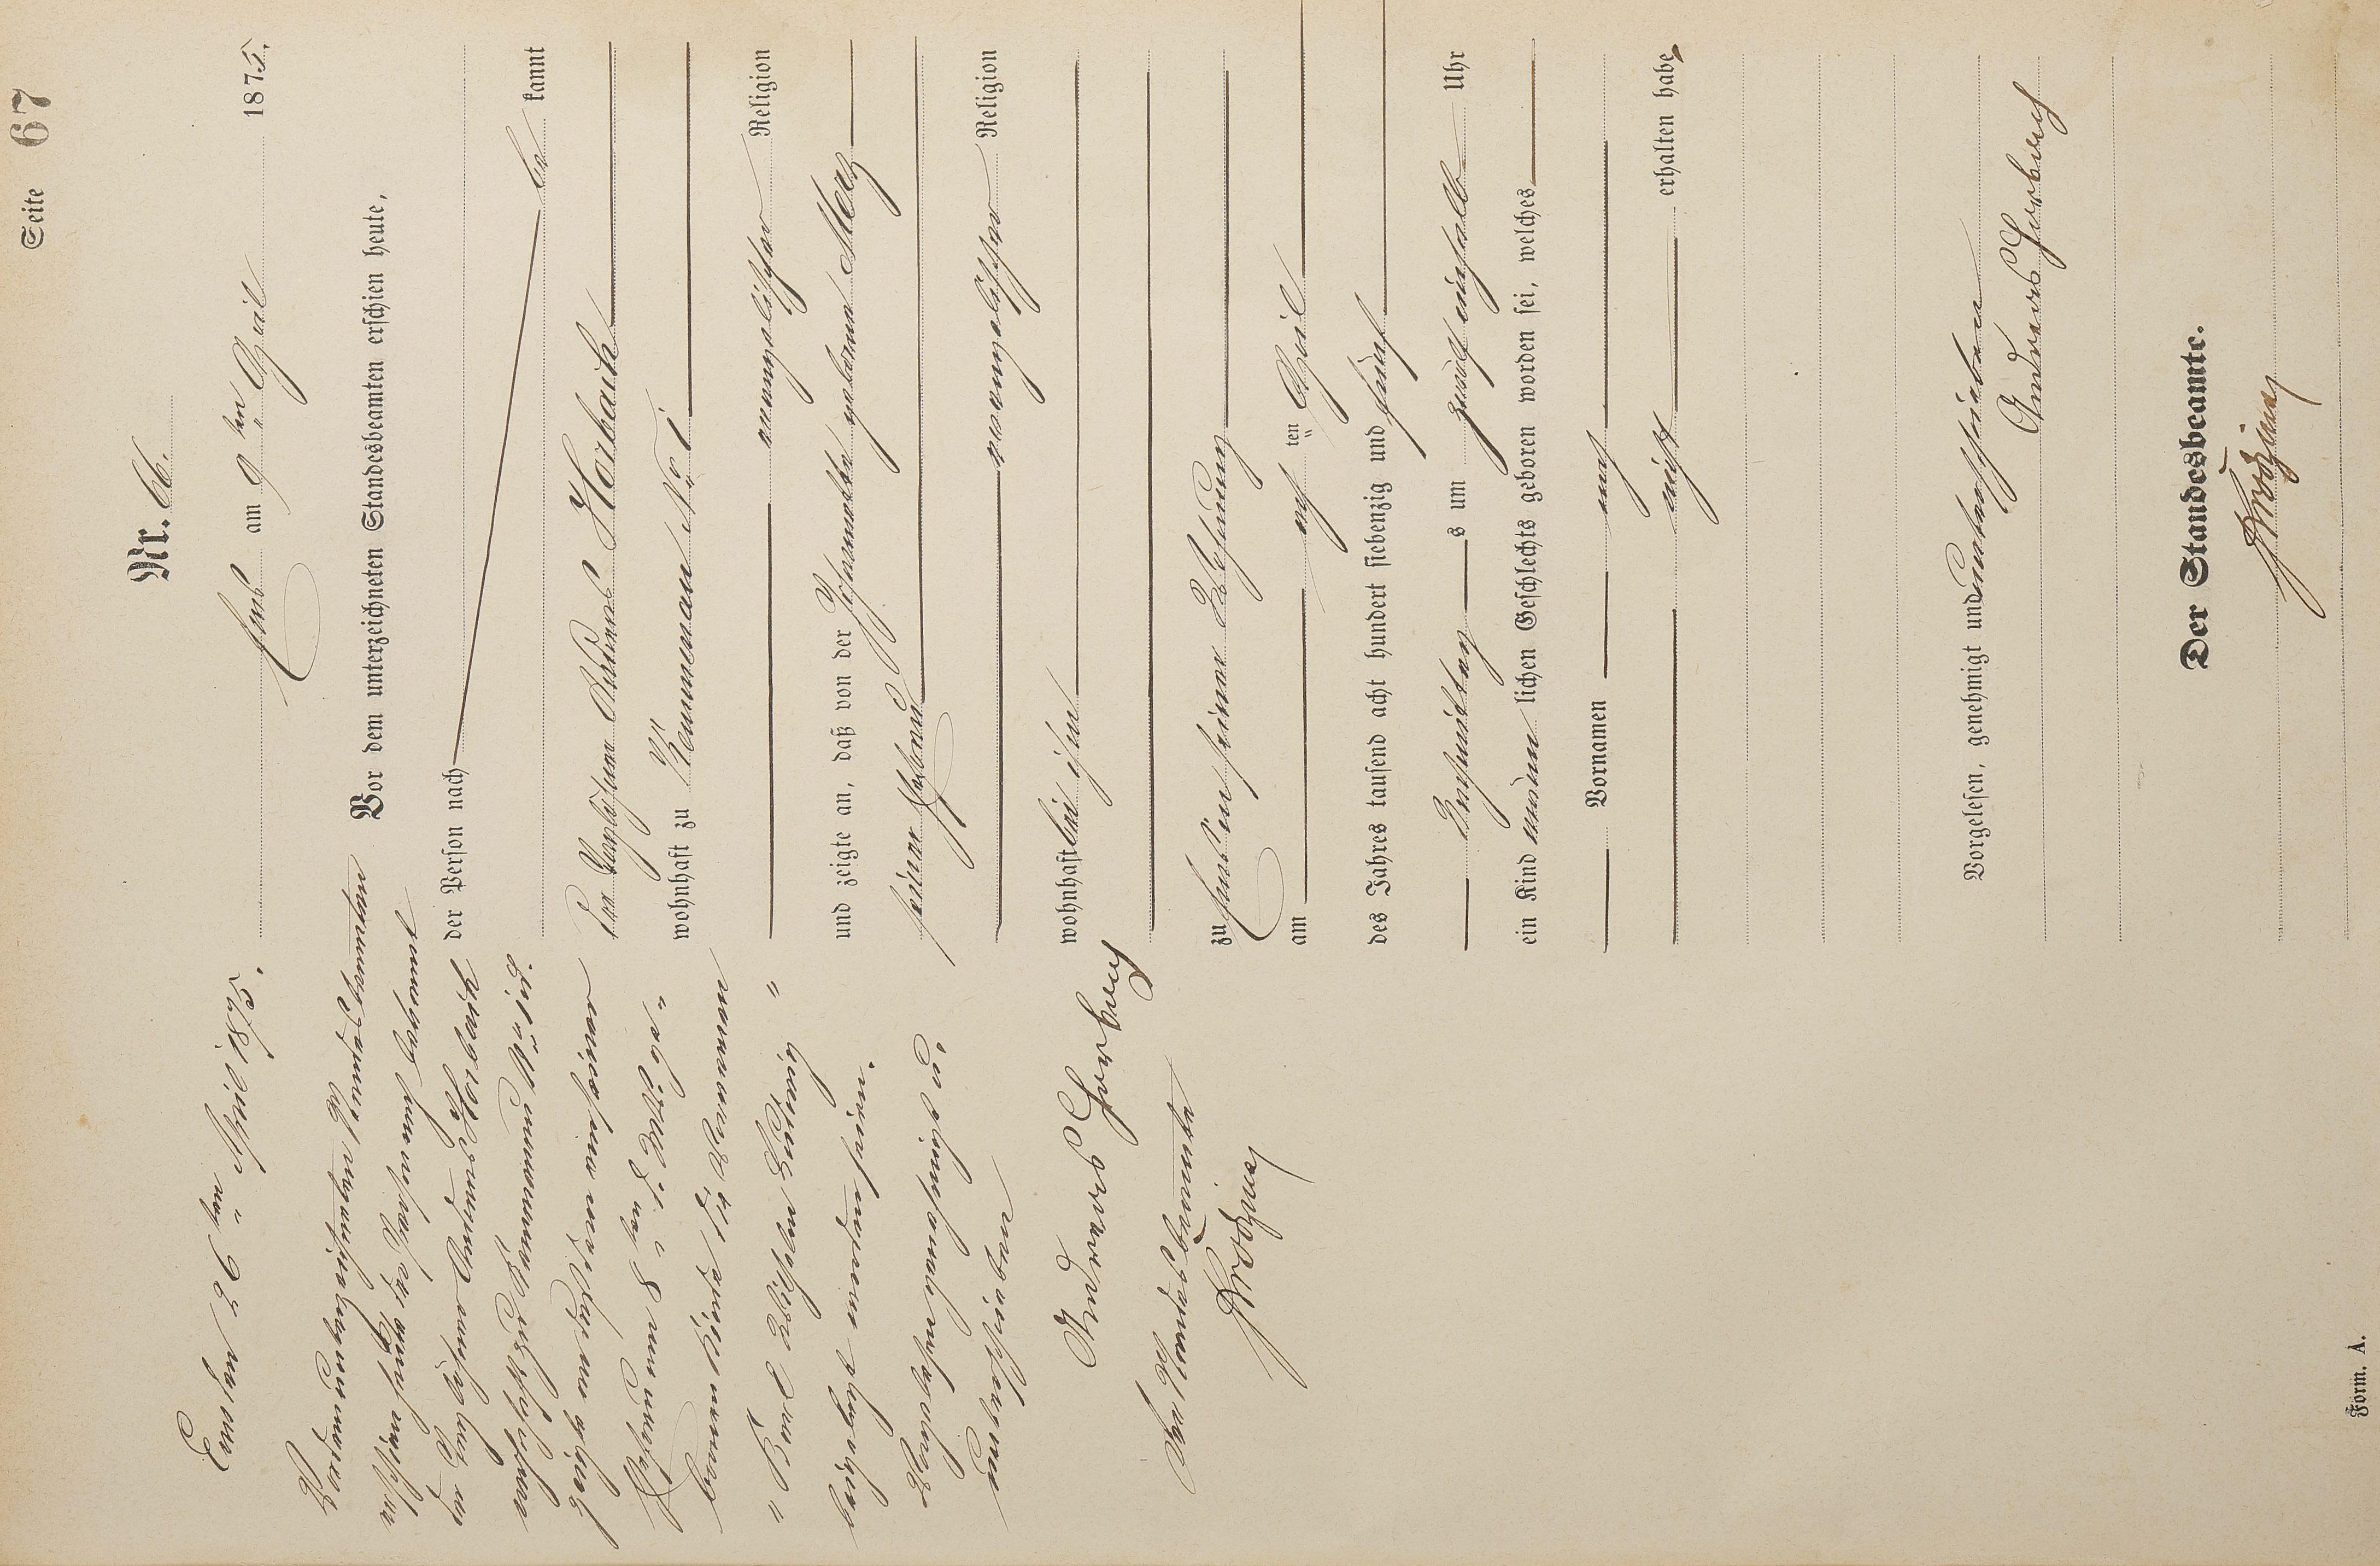 Seite 67
Nr. 66.
Ems am 9ten April 1875.
Vor dem unterzeichneten Standesbeamten erschien heute,
der Person nach
be kannt
Der Taglöhner Andreas Horbach
wohnhaft zu Kemmenau No 1
evangelischer Religion
und zeigte an, daß von der Johannette geborene Merz
seiner Ehefrau
evangelischer Religion
wohnhaft bei ihm
zu Ems in seiner Wohnung
am acht ten April
des Jahres tausend acht hundert siebenzig und fünf
Vormittags um zwölf einhalb Uhr
ein Kind männlichen Geschlechts geboren worden sei, welches
Vornamen noch
nicht erhalten habe,
Vorgelesen, genehmigt und unterschrieben
Andreas Horbach
Der Standesbeamte.
Ems den 26ten April 1875.
Vor dem unterzeichneten Standesbeamten
erschien heute der Person nach bekannt
der Taglöhner Andreas Horbach
wohnhaft zu Kemmenau No 1 und
zeigte an, daß dem von seiner
Ehefrau am 8ten d. Mts. ge-
borenen Kinde die Vornamen
" Karl Wilhelm Ludwig "
beigelegt worden seien.
Vorgelesen, genehmigt u.
unterschrieben
Andreas Horbach
Der Standesbeamte
Form. A.